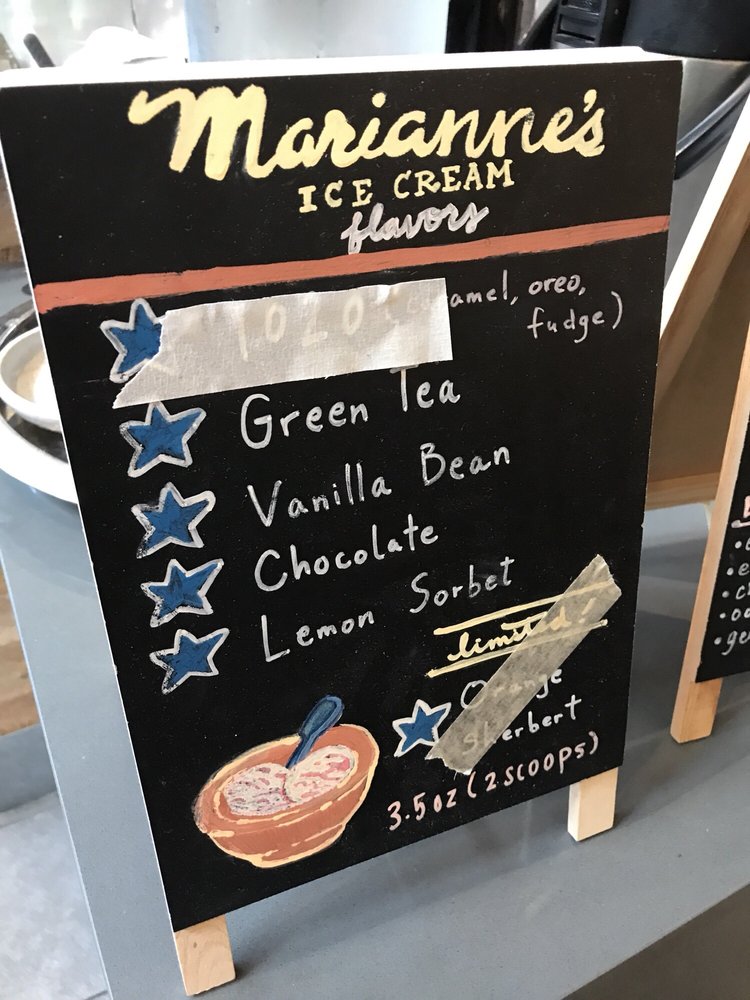 Marianne's
ICE CREAM
flavors
"YOLO" (caramel, oreo,
fudge)
Green Tea
Vanilla Bean
Chocolate
Lemon Sorbet
limited!
Orange
sherbert
3.5oz (2 scoops)